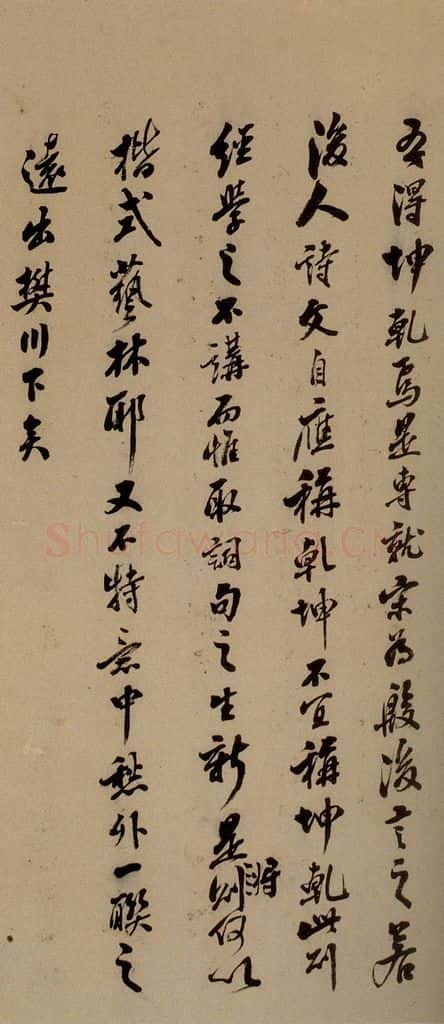 吾得坤乾焉是專就宋為殷後言之若
後人詩文自應稱乾坤不宜稱坤乾此則
經學之不講而惟取詞句之生新是則將何以
楷式藝林耶又不特意中愁外一聯之
遠出樊川下矣
Shufawang.CN